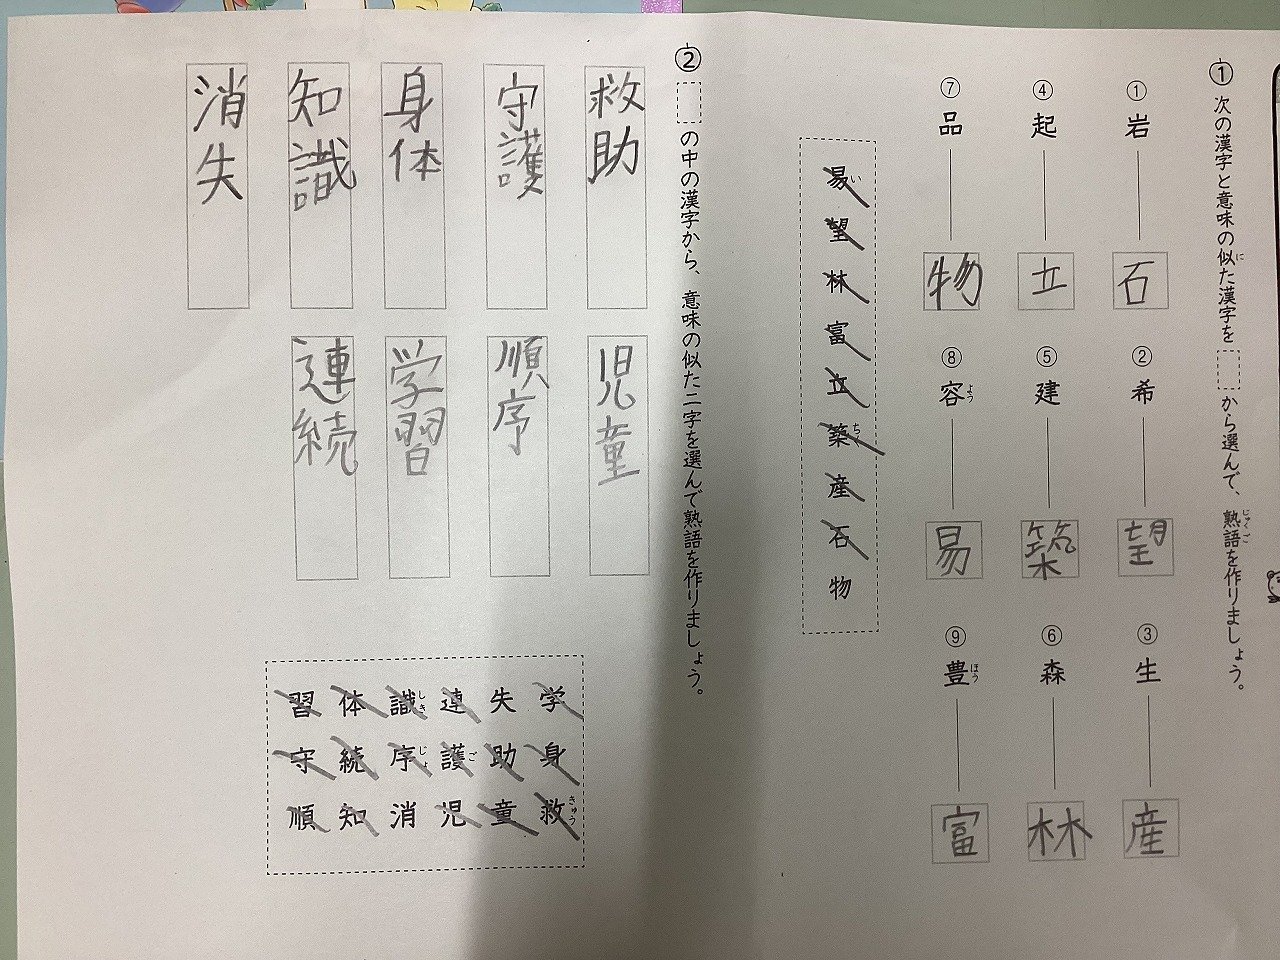 ① 次の漢字と意味の似た漢字を□から選んで、熟語を作りましょう。
に
じゅくご
① 岩 石
② 希 望
③ 生 産
④ 起 立
⑤ 建 築
⑥ 森 林
⑦ 品 物
⑧ 容 易
よう
⑨ 豊 富
ほう
易 望 林 富 立 築 産 石 物
い
ち
② □の中の漢字から、意味の似た二字を選んで熟語を作りましょう。
救助
児童
守護
順序
身体
学習
知識
連続
消失
学 身 救
きゅう
失 助 童
連 護 児
ご
識 序 消
しき
じょ
体 続 知
習 守 順